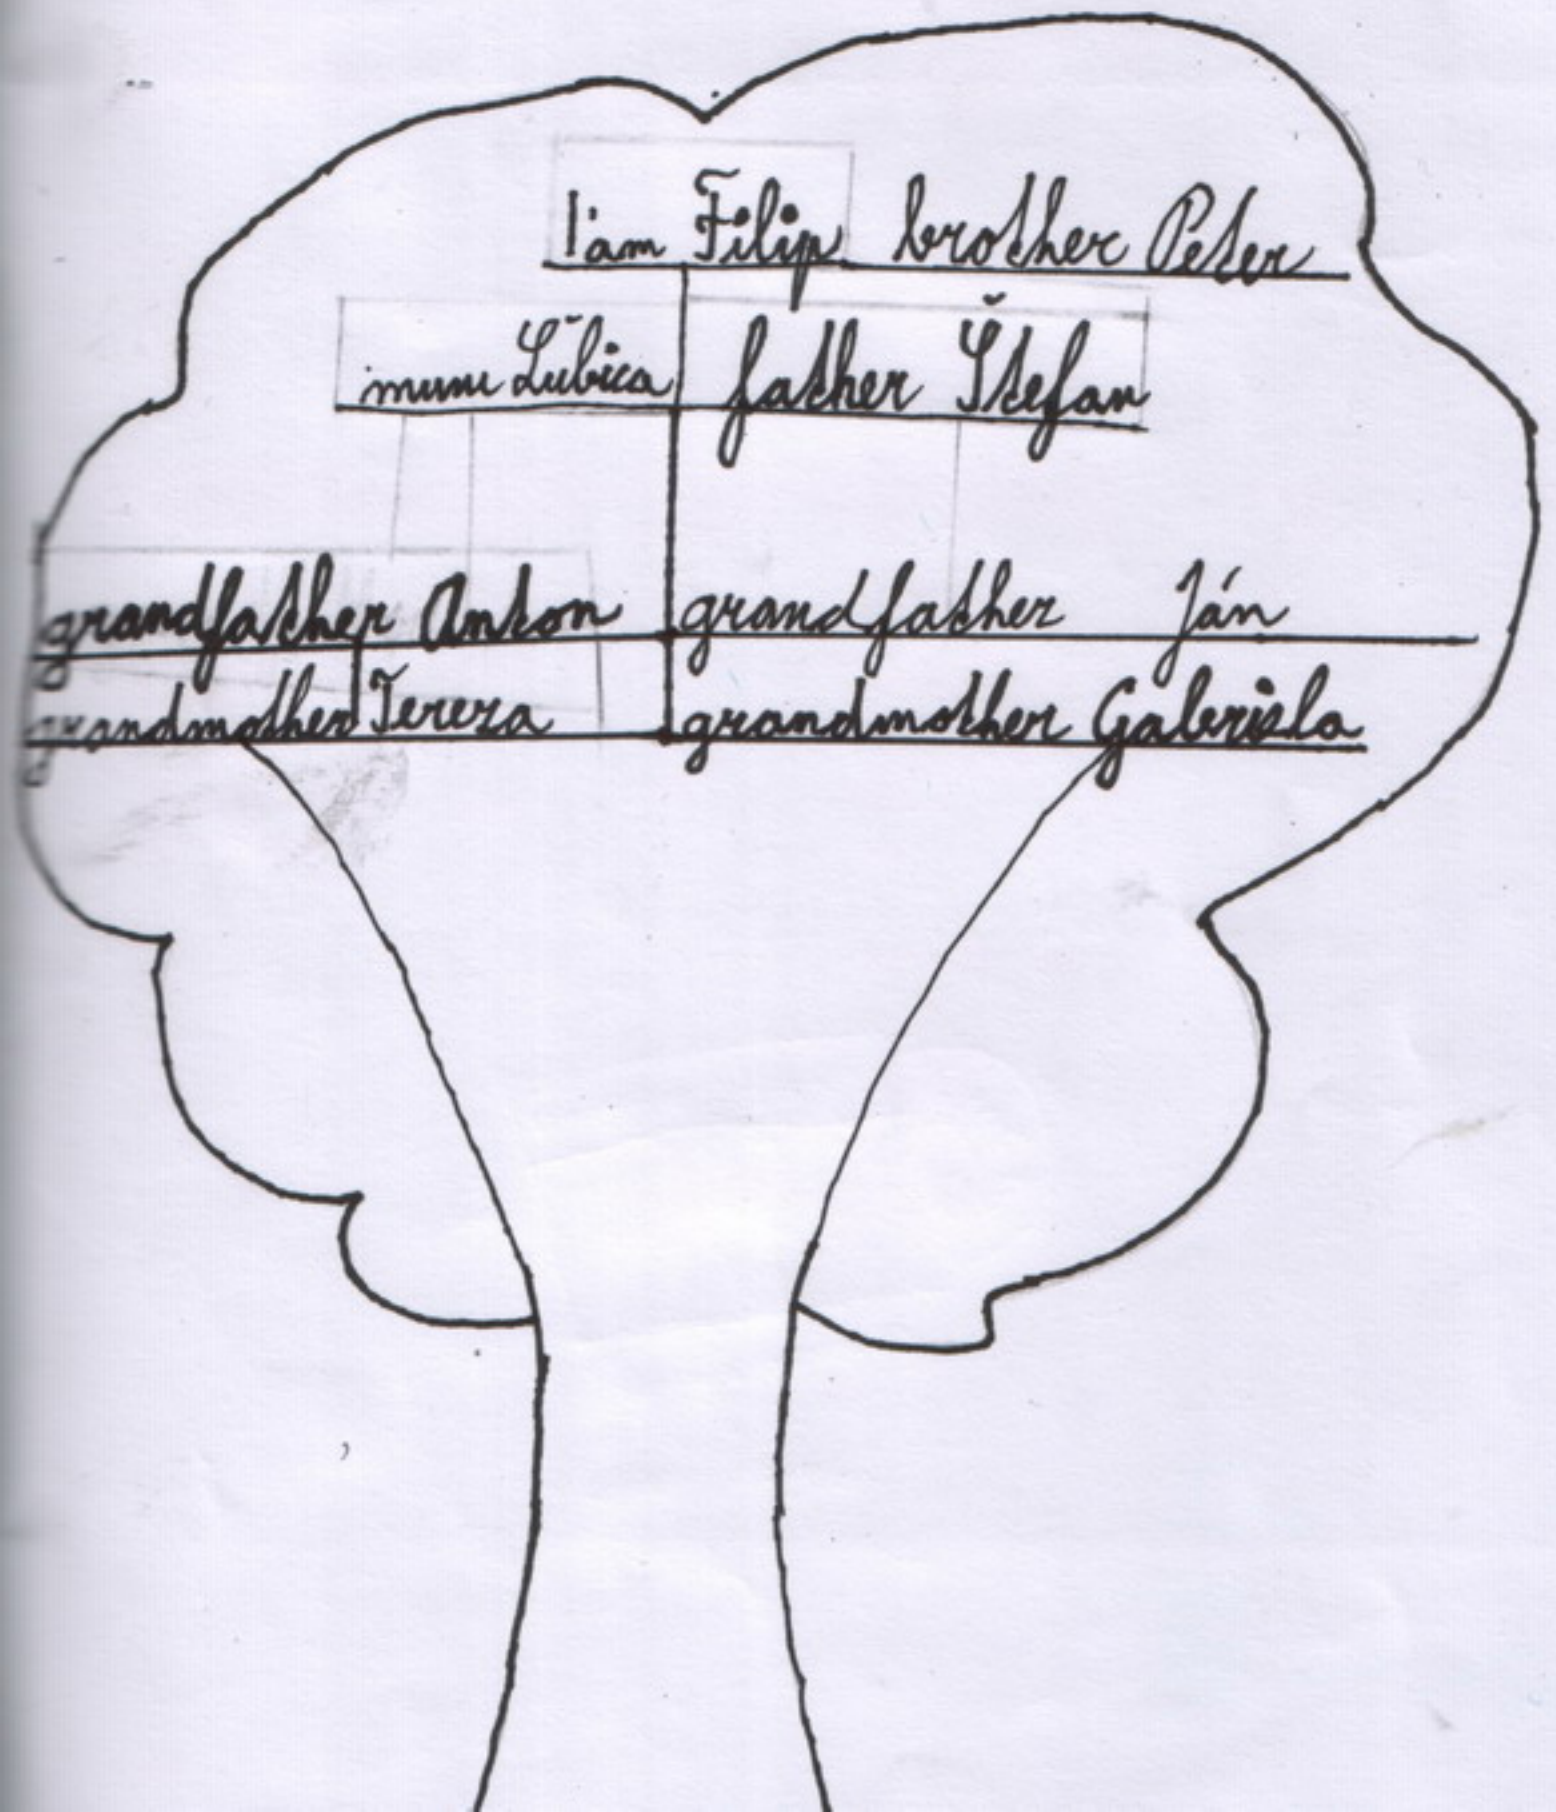 I'am Filip brother Peter
mum Ľubica father Štefan
grandfather Anton grandfather Ján
grandmother Tereza grandmother Gabriela